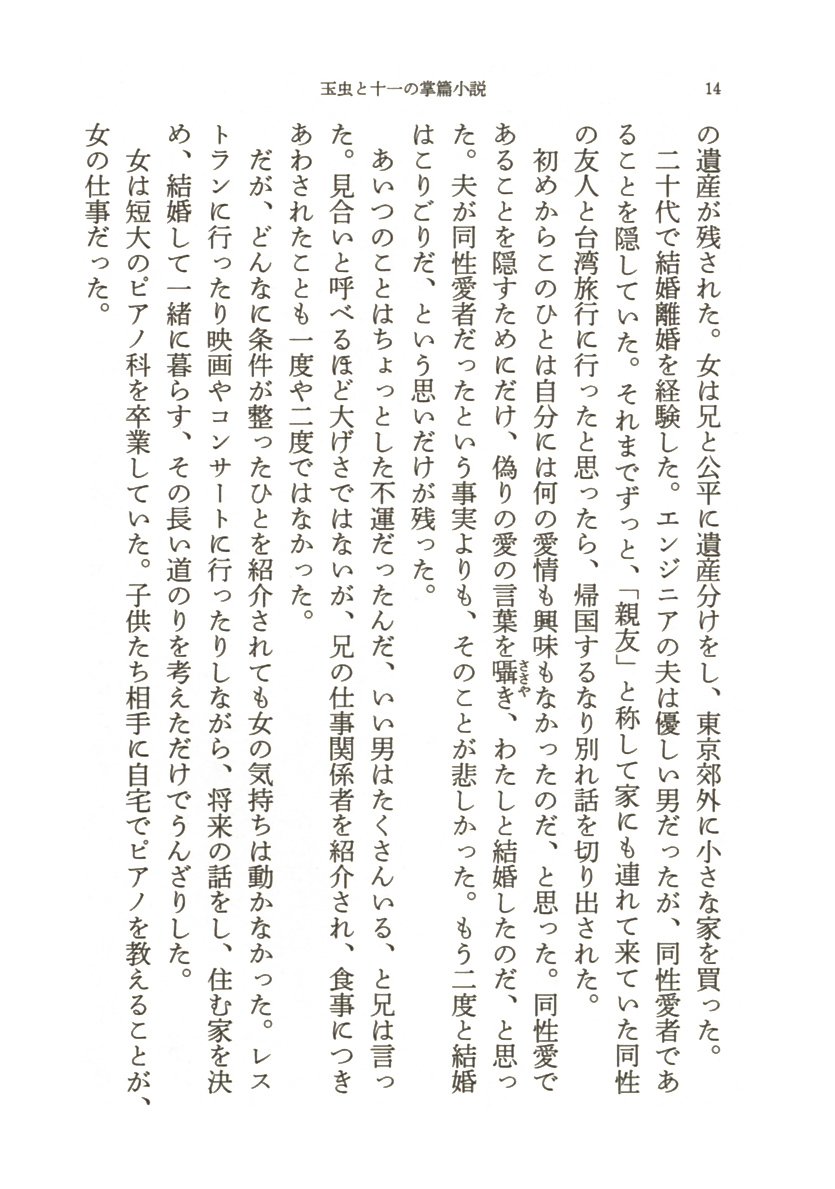 玉虫と十一の掌篇小説
14
の遺産が残された。女は兄と公平に遺産分けをし、東京郊外に小さな家を買った。
二十代で結婚離婚を経験した。エンジニアの夫は優しい男だったが、同性愛者であ
ることを隠していた。それまでずっと、「親友」と称して家にも連れて来ていた同性
の友人と台湾旅行に行ったと思ったら、帰国するなり別れ話を切り出された。
初めからこのひとは自分には何の愛情も興味もなかったのだ、と思った。同性愛で
あることを隠すためにだけ、偽りの愛の言葉を囁き、わたしと結婚したのだ、と思っ
ささや
た。夫が同性愛者だったという事実よりも、そのことが悲しかった。もう二度と結婚
はこりごりだ、という思いだけが残った。
あいつのことはちょっとした不運だったんだ、いい男はたくさんいる、と兄は言っ
た。見合いと呼べるほど大げさではないが、兄の仕事関係者を紹介され、食事につき
あわされたことも一度や二度ではなかった。
だが、どんなに条件が整ったひとを紹介されても女の気持ちは動かなかった。レス
トランに行ったり映画やコンサートに行ったりしながら、将来の話をし、住む家を決
め、結婚して一緒に暮らす、その長い道のりを考えただけでうんざりした。
女は短大のピアノ科を卒業していた。子供たち相手に自宅でピアノを教えることが、
女の仕事だった。